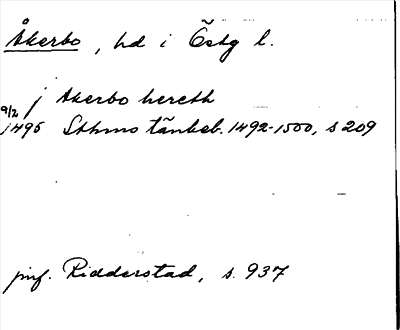 Åkerbo, hd i Östg l.
j Akerbo hereth
9/2 1495 Sthms tänkeb. 1492-1500, s 209
jmf. Ridderstad, s. 937